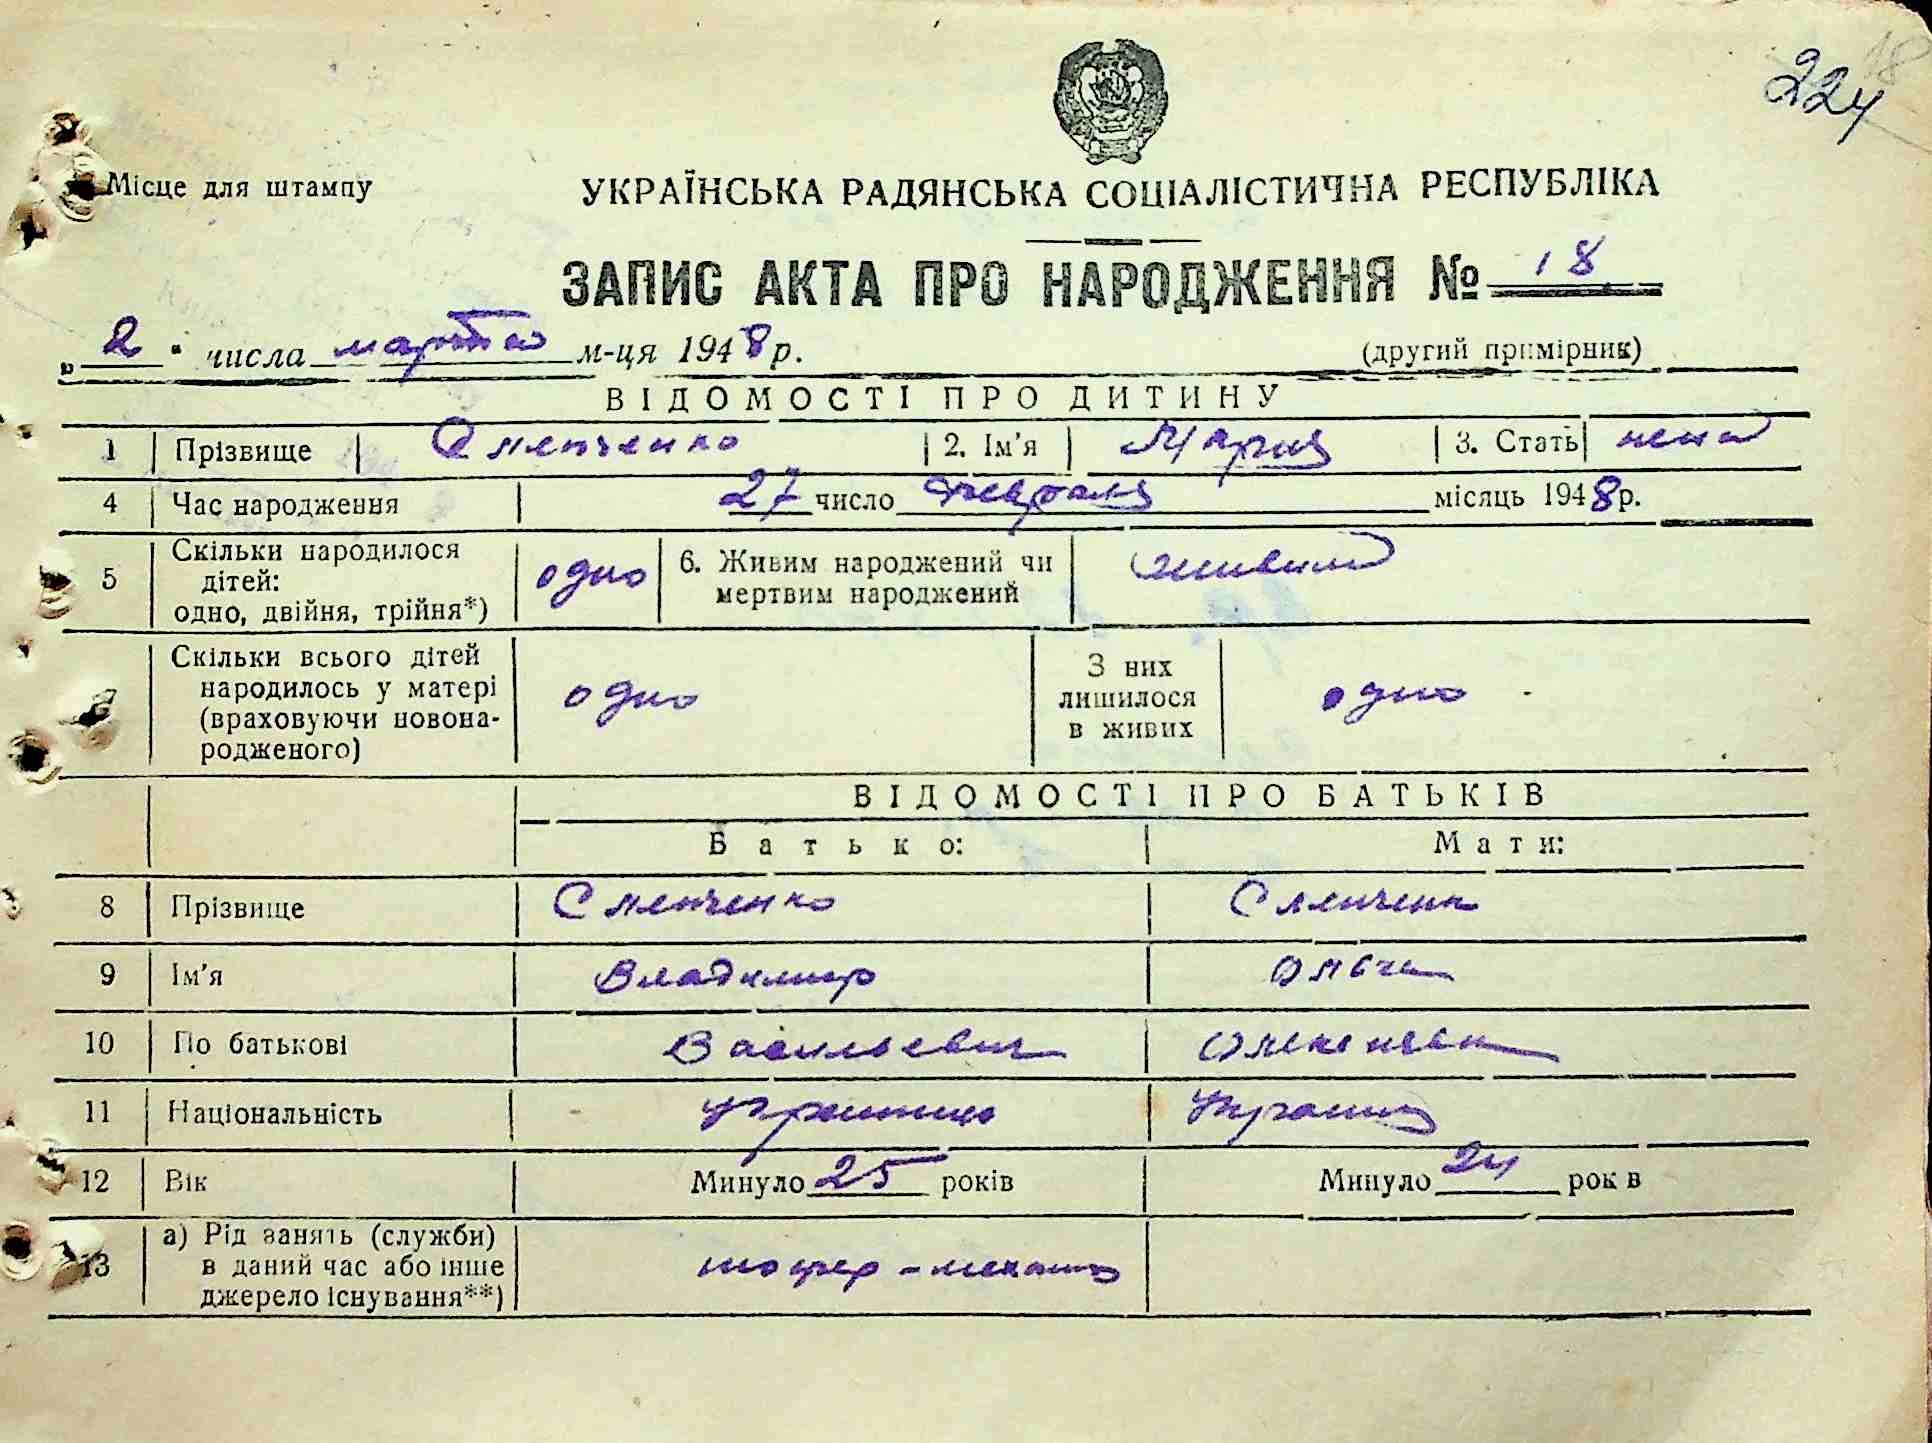 224
18
Місце для штампу
УКРАЇНСЬКА РАДЯНСЬКА СОЦІАЛІСТИЧНА РЕСПУБЛІКА
ЗАПИС АКТА ПРО НАРОДЖЕННЯ № 18
„2“ числа марта м-ця 1948 р.
(другий примірник)
ВІДОМОСТІ ПРО ДИТИНУ
1 Прізвище 2. Ім'я Мария 3. Стать
4 Час народження 27 число февраля місяць 1948 р.
5 Скільки народилося дітей: одно, двійня, трійня*) одно 6. Живим народжений чи мертвим народжений живым
7 Скільки всього дітей народилось у матері (враховуючи новонародженого) одно З них лишилося в живих одно
ВІДОМОСТІ ПРО БАТЬКІВ
Батько: Мати:
8 Прізвище
9 Ім'я Владимир Ольга
10 По батькові Васильевич
11 Національність украинец
12 Вік Минуло 25 років Минуло 24 рок в
13 а) Рід занять (служби) в даний час або інше джерело існування**) шофер-механик